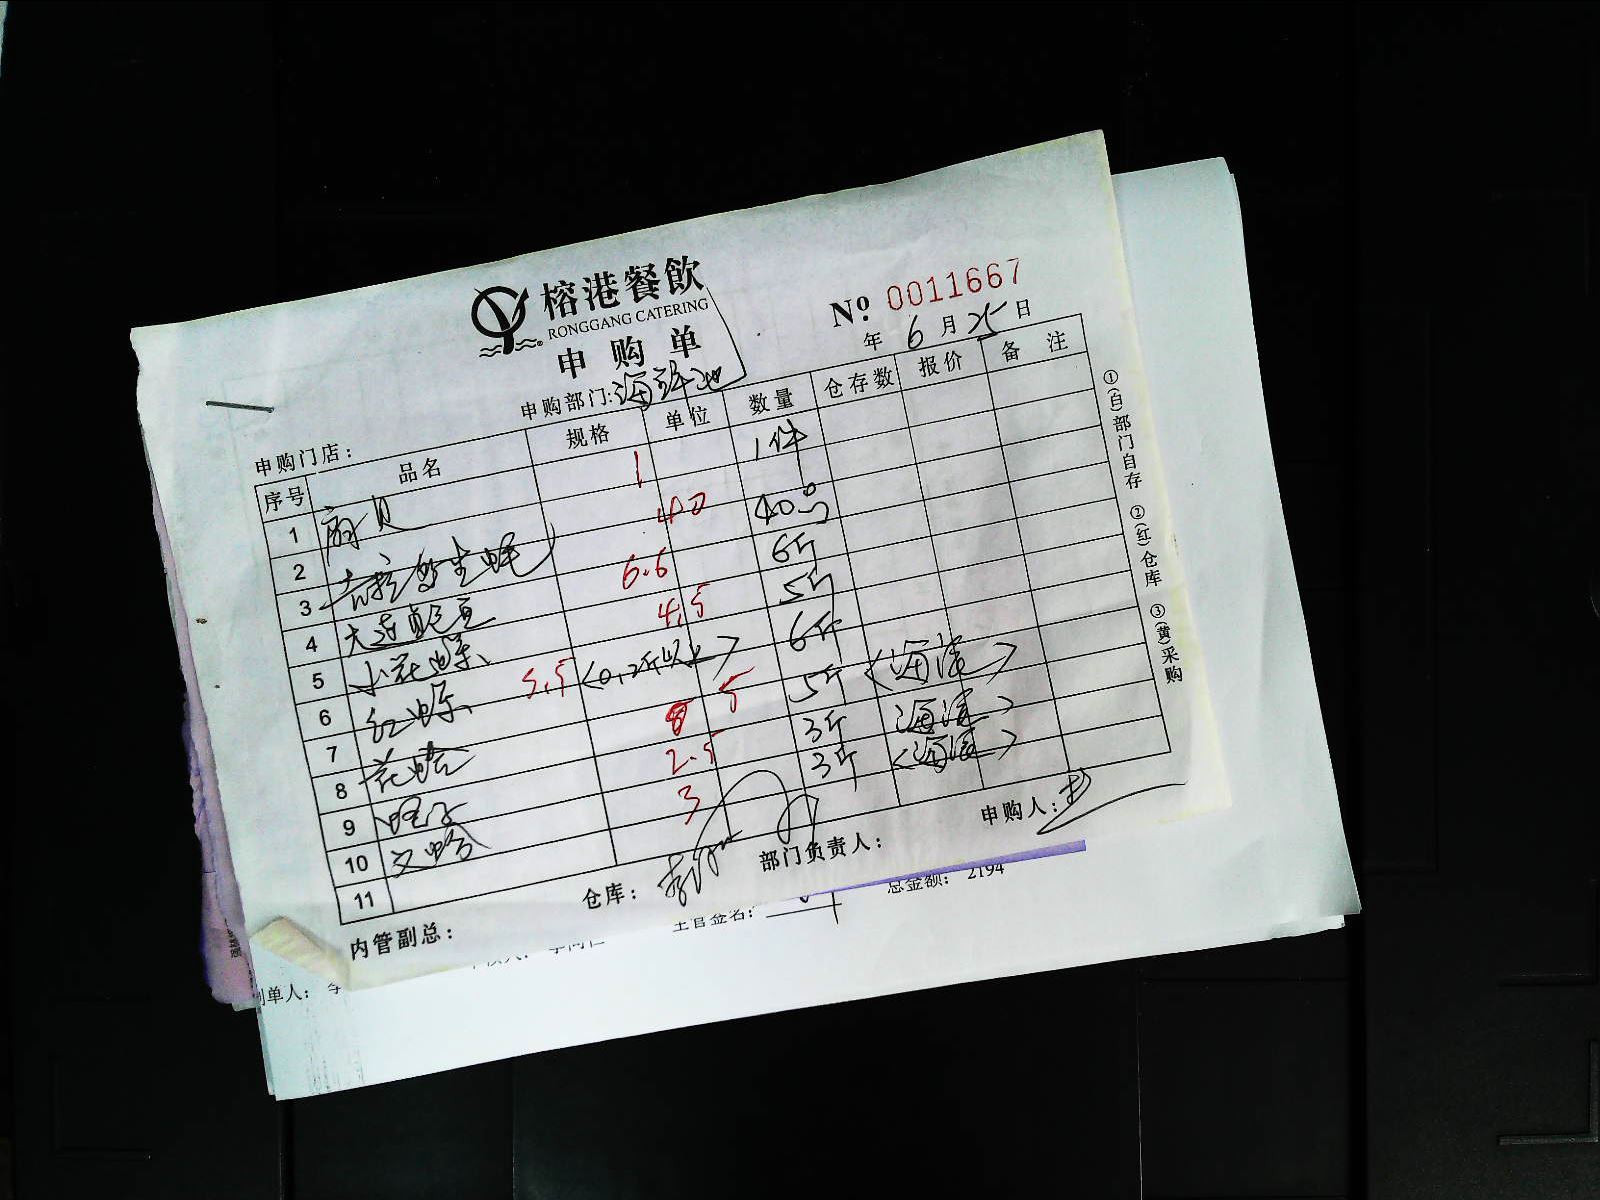 榕港餐飲
RONGGANG CATERING
申购单
Nº 0011667
年 6 月 25 日
申购部门:海鲜池
申购门店:
序号 品名 规格 单位 数量 仓存数 报价 备注
1 扇贝 1 1件
2 吉拉多生蚝 40 40只
3 大连鲍 6.6 6斤
4 小花螺 4.5 5斤
5 红螺 5.5 <0.2斤以上> 6斤
6 花蛤 5 5斤 <海渡>
7 蛏子 2.5 3斤 海渡>
8 文蛤 3 3斤 <海渡>
9
10
11
内管副总:
仓库:
部门负责人:
申购人:
①(白)部门自存 ②(红)仓库 ③(黄)采购
总金额: 2194
主管签名:
制单人: 李